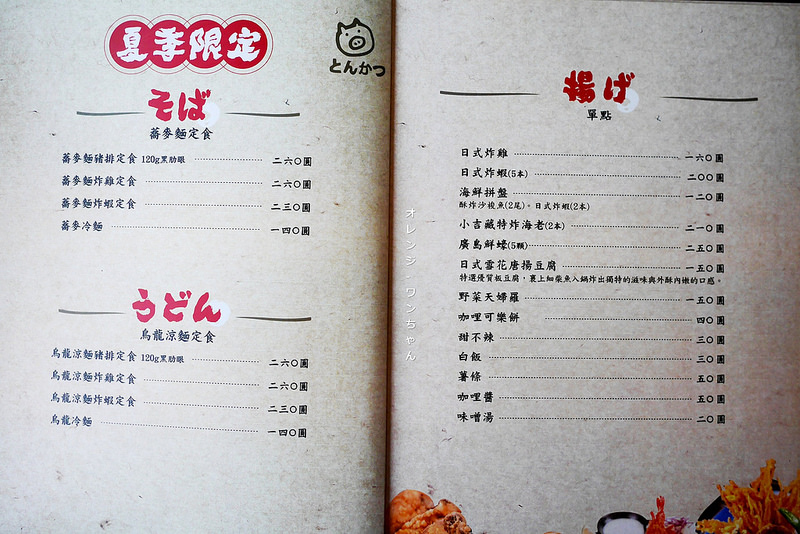 夏季限定
とんかつ
そば
蕎麥麵定食
蕎麥麵豬排定食 120g黑肋眼 二六〇圓
蕎麥麵炸雞定食 二六〇圓
蕎麥麵炸蝦定食 二三〇圓
蕎麥冷麵 一四〇圓
うどん
烏龍涼麵定食
烏龍涼麵豬排定食 120g黑肋眼 二六〇圓
烏龍涼麵炸雞定食 二六〇圓
烏龍涼麵炸蝦定食 二三〇圓
烏龍冷麵 一四〇圓
オレンジ．ワンちゃん
揚げ
單點
日式炸雞 一六〇圓
日式炸蝦(5本) 二〇〇圓
海鮮拼盤 一二〇圓
酥炸沙梭魚(2尾)。日式炸蝦(2本)
小吉藏特炸海老(2本) 二一〇圓
廣島鮮蠔(5顆) 二五〇圓
日式雪花唐揚豆腐 一五〇圓
特選優質板豆腐，裹上細柴魚入鍋炸出獨特的滋味與外酥內嫩的口感。
野菜天婦羅 一五〇圓
咖哩可樂餅 四〇圓
甜不辣 三〇圓
白飯 三〇圓
薯條 五〇圓
咖哩醬 五〇圓
味噌湯 二〇圓